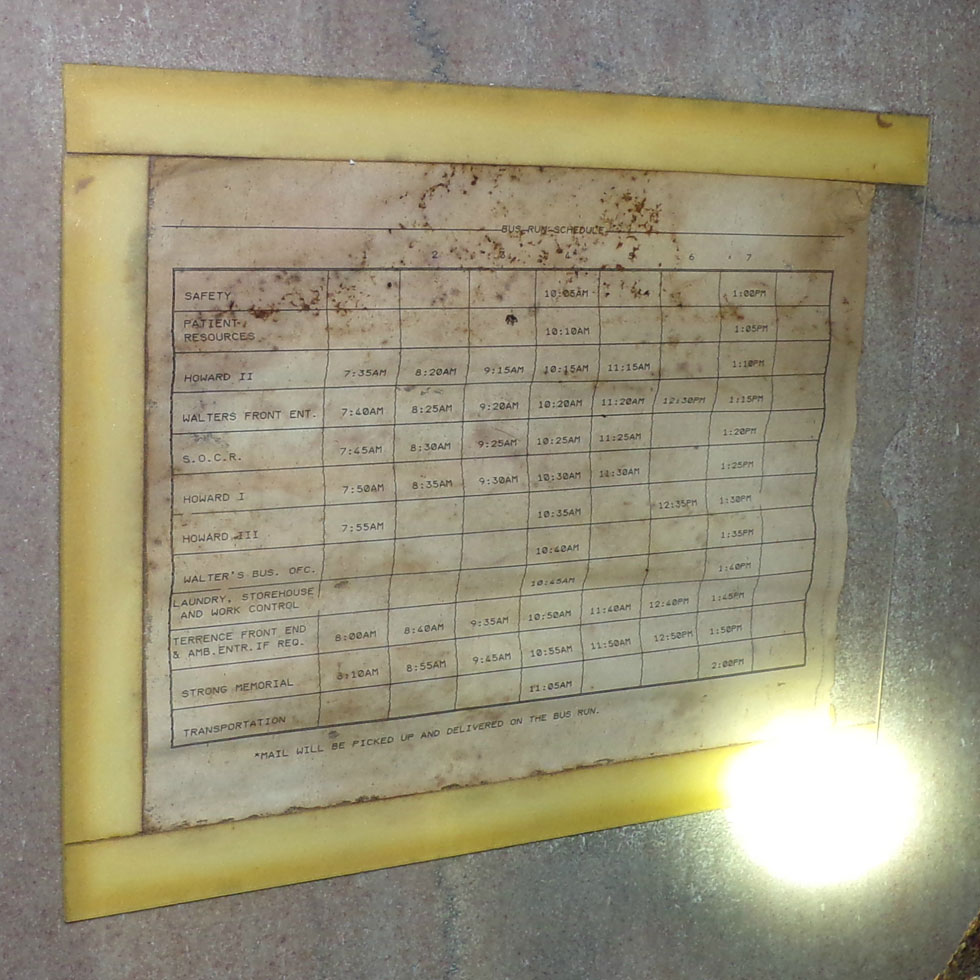 BUS RUN SCHEDULE
2 3 4 5 6 7
SAFETY 10:05AM 1:00PM
PATIENT
RESOURCES 10:10AM 1:05PM
HOWARD II 7:35AM 8:20AM 9:15AM 10:15AM 11:15AM 1:10PM
WALTERS FRONT ENT. 7:40AM 8:25AM 9:20AM 10:20AM 11:20AM 12:30PM 1:15PM
S.O.C.R. 7:45AM 8:30AM 9:25AM 10:25AM 11:25AM 1:20PM
HOWARD I 7:50AM 8:35AM 9:30AM 10:30AM 11:30AM 1:25PM
HOWARD III 7:55AM 10:35AM 12:35PM 1:30PM
WALTER'S BUS. OFC. 10:40AM 1:35PM
LAUNDRY, STOREHOUSE
AND WORK CONTROL 10:45AM 1:40PM
TERRENCE FRONT END
& AMB.ENTR.IF REQ. 8:00AM 8:40AM 9:35AM 10:50AM 11:40AM 12:40PM 1:45PM
STRONG MEMORIAL 8:10AM 8:55AM 9:45AM 10:55AM 11:50AM 12:50PM 1:50PM
TRANSPORTATION 11:05AM 2:00PM
*MAIL WILL BE PICKED UP AND DELIVERED ON THE BUS RUN.